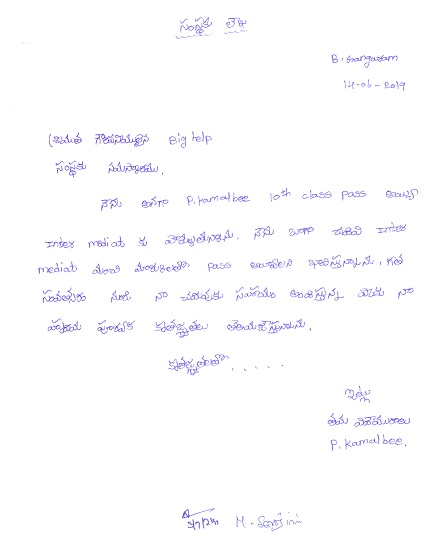 సంస్థకు లేఖ
B. Gangaram
14-06-2019
గౌరవనీయులైన Big help
సంస్థకు నమస్కారము,
నేను అనగా P.Kamalbee 10th class pass అయ్యి
Inter mediat కు వెళ్ళుతున్నాను. నేను బాగా చదివి Inter
mediat మంచి మార్కులతో pass అవ్వాలని భావిస్తున్నాను, గత
సంవత్సరం నుండి నా చదువుకు సహాయం అందిస్తున్న మీకు నా
హృదయ పూర్వక కృతజ్ఞతలు తెలియజేస్తున్నాను.
కృతజ్ఞతలతో.....
ఇట్లు
తమ విధేయురాలు
P. Kamalbee.